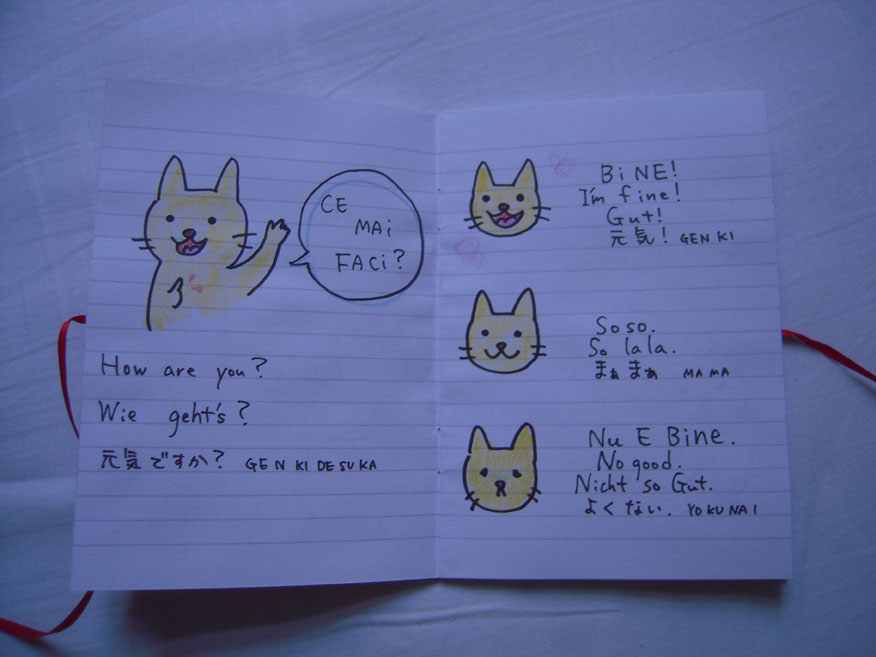 CE
MAi
FACi?
How are you?
Wie geht's?
元気ですか? GENKI DESUKA
BiNE!
I'm fine!
Gut!
元気! GENKI
Soso.
So lala.
まぁまぁ MAMA
Nu E Bine.
No good.
Nicht so Gut.
よくない. YOKUNAI